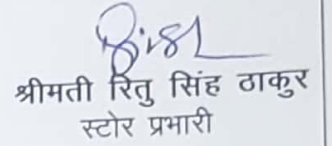 श्रीमती रितु सिंह ठाकुर
स्टोर प्रभारी